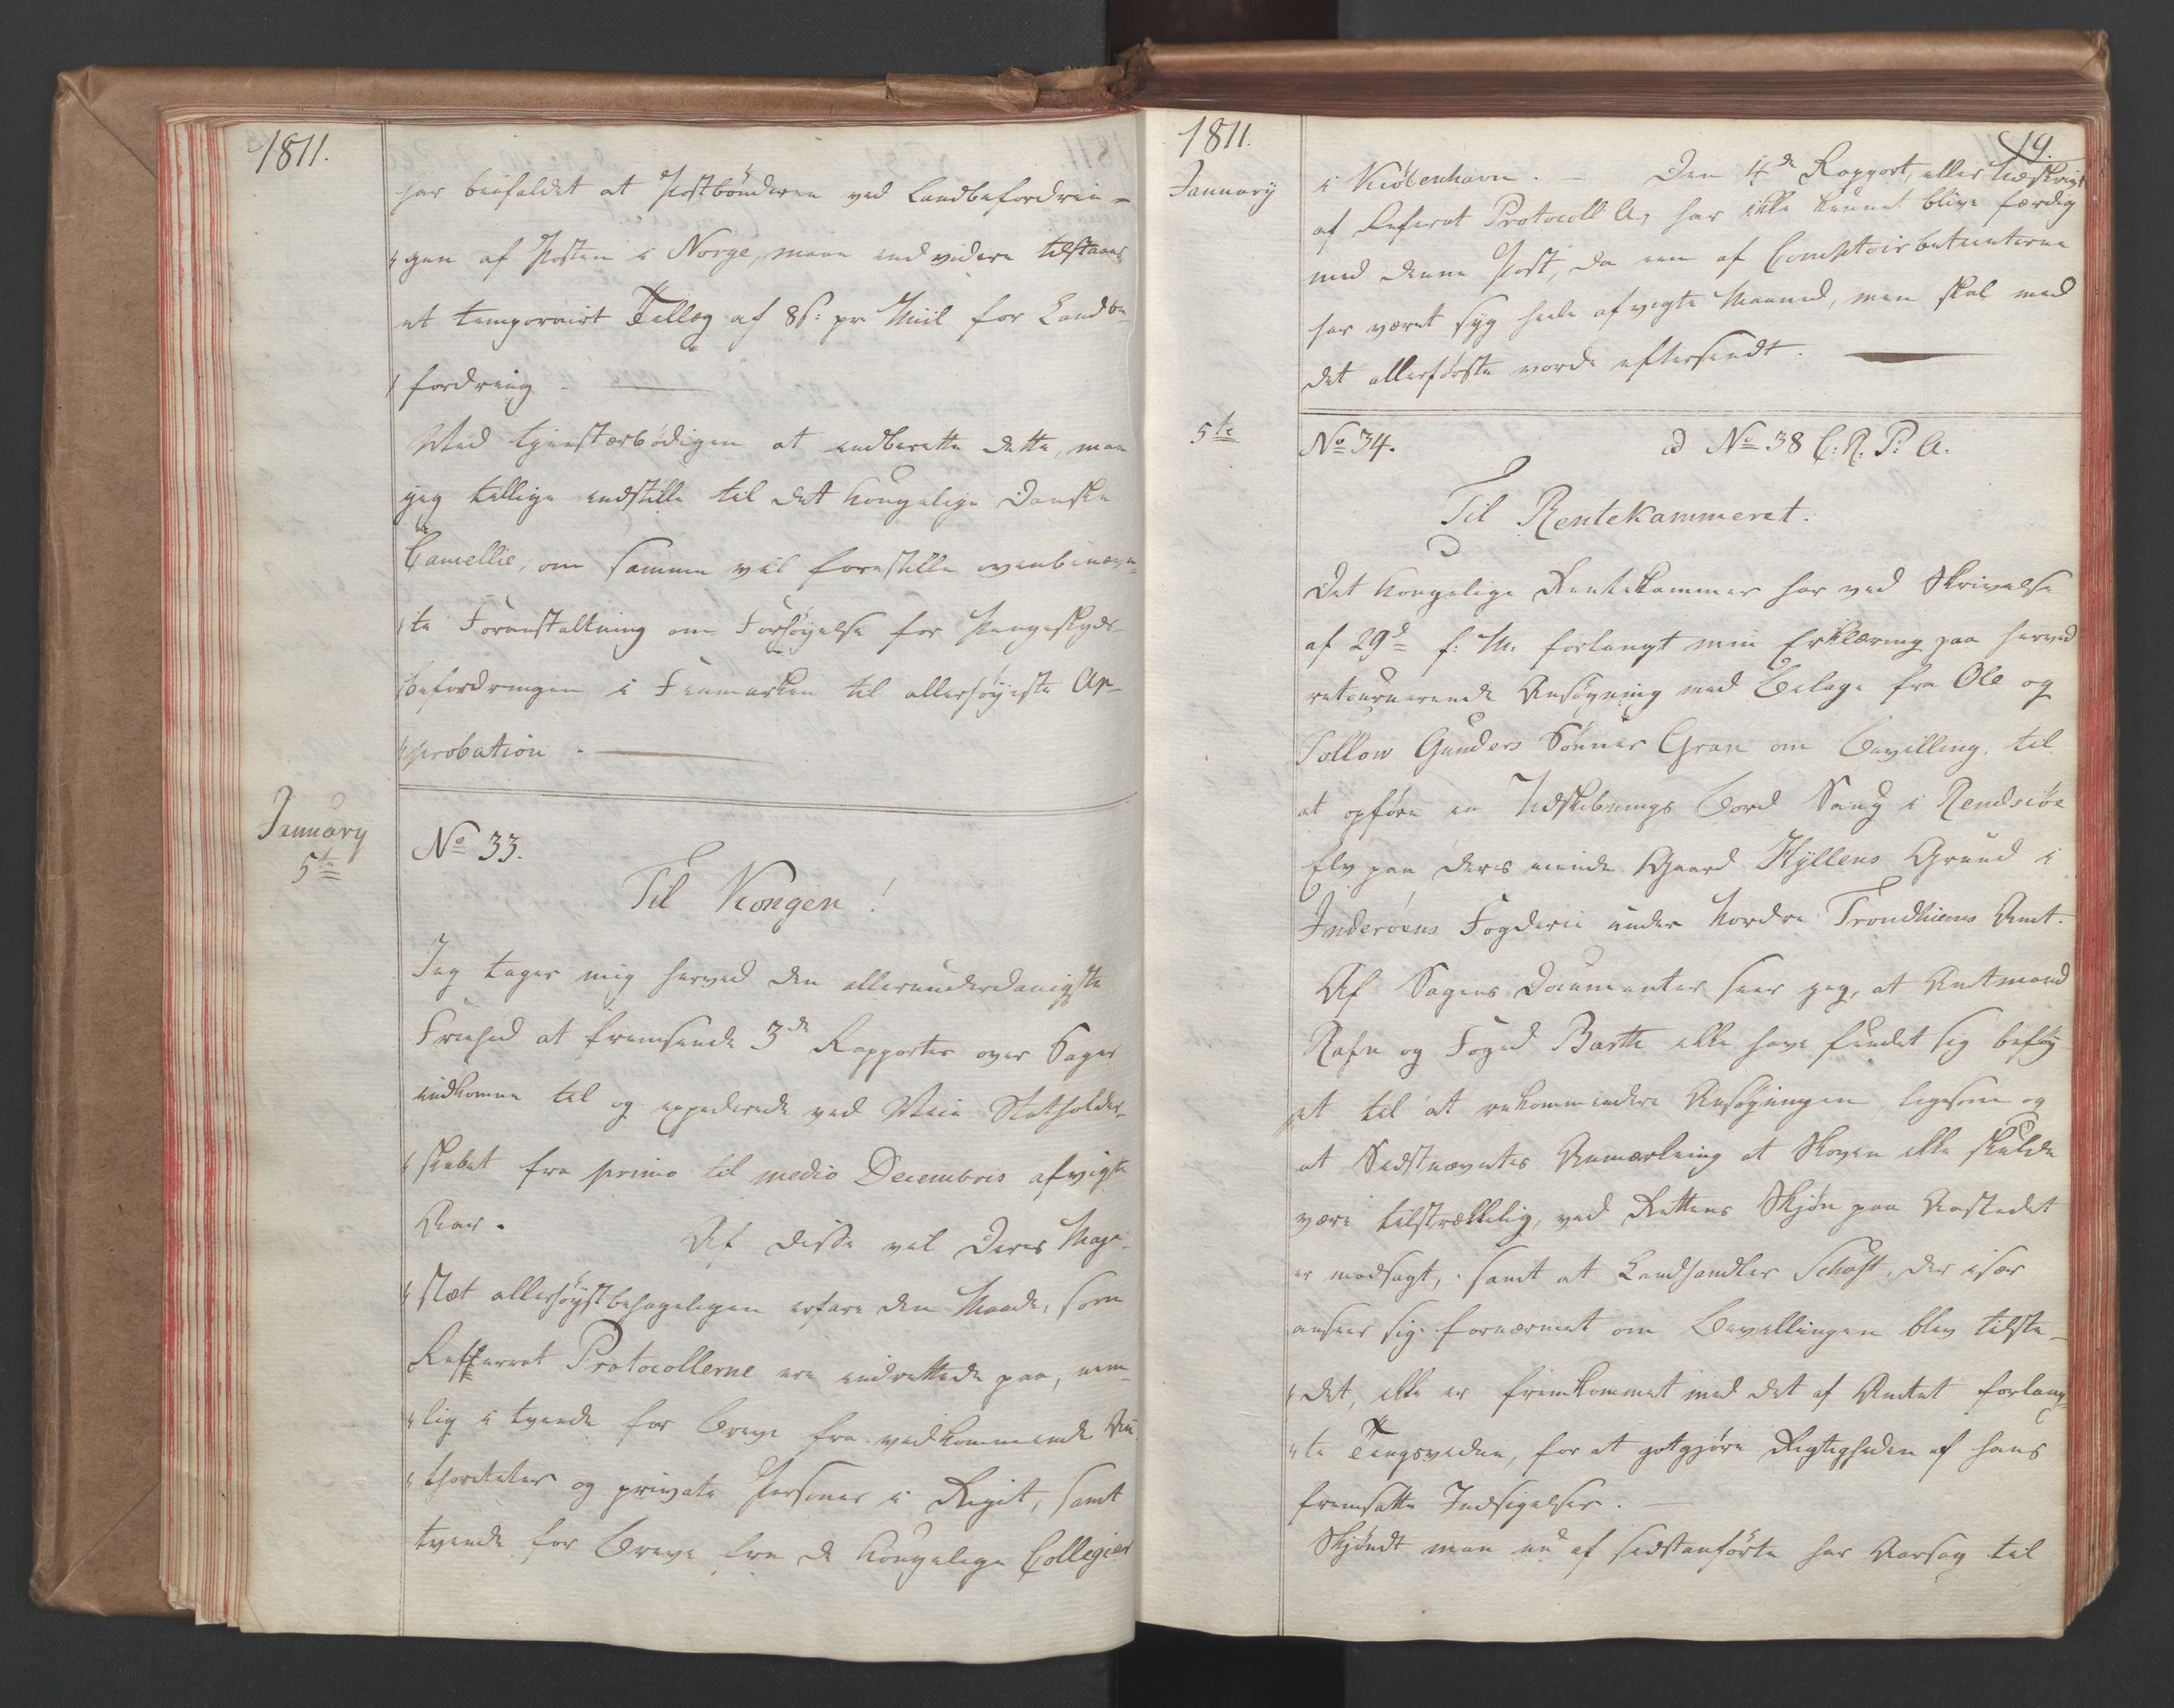 1811.
har bifaldet at Postbönderne ved Landbefordrin-
"gen af Posten i Norge, maae endvidere tilstaaes
et temporairt Tillæg af 8 s: pr Miil for Landbe-
"fordring. —
Ved tienstærbödigen at indberette dette, maa
jeg tillige indstille til det Kongelige Danske
Cancellie, om samme vil forestille ovenbenævn-
"te Foranstaltning om Forhöyelse for Pengeskyds
befordringen i Finmarken til allerhöyeste Ap-
"probation. —
January
5te
No 33.
Til Kongen!
Jeg tager mig herved den allerunderdanigste
Friehed at fremsende 3de Rapporter over Sager
indkomne til og expederede ved Vice Statholder-
"skabet fra primo til medio Decembris afvigte
Aar. Af disse vil Deres Maje-
"stæt allerhöystbehageligen erfare den Maade, som
Refferat Protocollerne ere indrettede paa, nem-
"lig i tvende for Breve fra vedkommende Au-
"thoriteter og private Personer i Riget, samt
tvende for Breve fra de Kongelige Collegier
1811.
January
19.
i Kiöbenhavn. — Den 4de Rapport, eller Udskrivt
af Referat Protocoll A, har ikke kunnet blive færdig
med denne Post, da een af Comptoirbetienterne
har været syg hele afvigte Maaned, men skal med
det allerförste vorde eftersendt. —
5te
No 34. ad No 38 C: R. P: A.
Til Rentekammeret.
Det Kongelige Rentekammer har ved Skrivelse
af 29d f: M. forlangt min Erklæring paa herved
retournerende Ansögning med Bilage fra Ole og
Tollow Gunders Sönner Gran om Bevilling til
at opföre en Udskibnings Bord Saug i Rendsiöe
Elv paa deres eiende Gaard Kyllens Grund i
Inderöens Fogderie under Nordre Trondhiems Amt.
Af Sagens Documenter seer jeg, at Amtmand
Rafn og Foged Barth ikke have fundet sig beföy-
et til at rekommendere Ansögningen ligesom og
at Sidstnævntes Anmærkning at Skoven ikke skulde
være tilstrækkelig, ved Rettens Skjön paa Aastedet
er modsagt, samt at Landhandler Schöft, der især
ansaae sig fornærmet om Bevillingen blev tilste-
"det, ikke er fremkommet med det af Amtet forlang-
"te Tingsvidne, for at gotgjöre Rigtigheden af hans
fremsatte Indsigelser. —
Skjöndt man nu af sidstanförte har Aarsag til